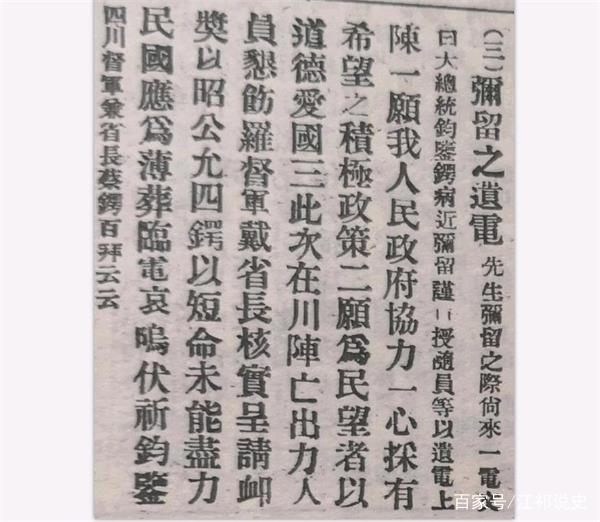 （三）彌留之遺電 先生彌留之際尙來一電
曰大總統鈞鑒鍔病近彌留謹口授隨員等以遺電上
陳一願我人民政府協力一心採有
希望之積極政策二願爲民望者以
道德愛國三此次在川陣亡出力人
員懇飭羅督軍戴省長核實呈請卹
奬以昭公允四鍔以短命未能盡力
民國應爲薄葬臨電哀鳴伏祈鈞鑒
四川督軍兼省長蔡鍔百拜云云
百家号/江祁说史